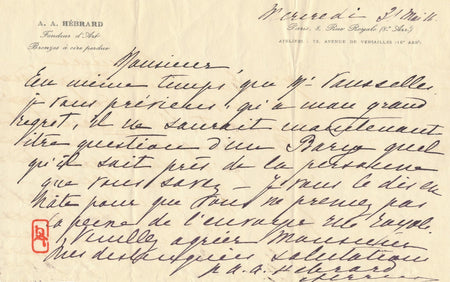 A. A. HÉBRARD
Fondeur d'Art
Bronzes à cire perdue
Mercredi 31 Mai
Paris, 8, Rue Royale (8e Arrt)
ATELIERS : 73, AVENUE DE VERSAILLES (16e ARRt)
Monsieur
En même temps que Mr Vauxelles
je vous préviens qu'à mon grand
regret, il ne saurait maintenant
être question d'un Barye quel
qu'il soit près de la personne
que vous savez – Je vous le dis en
hâte pour que vous ne preniez pas
la peine de l'envoyer rue Royale
Veuillez agréer Monsieur
mes distinguées salutations
p. A. A. Hébrard